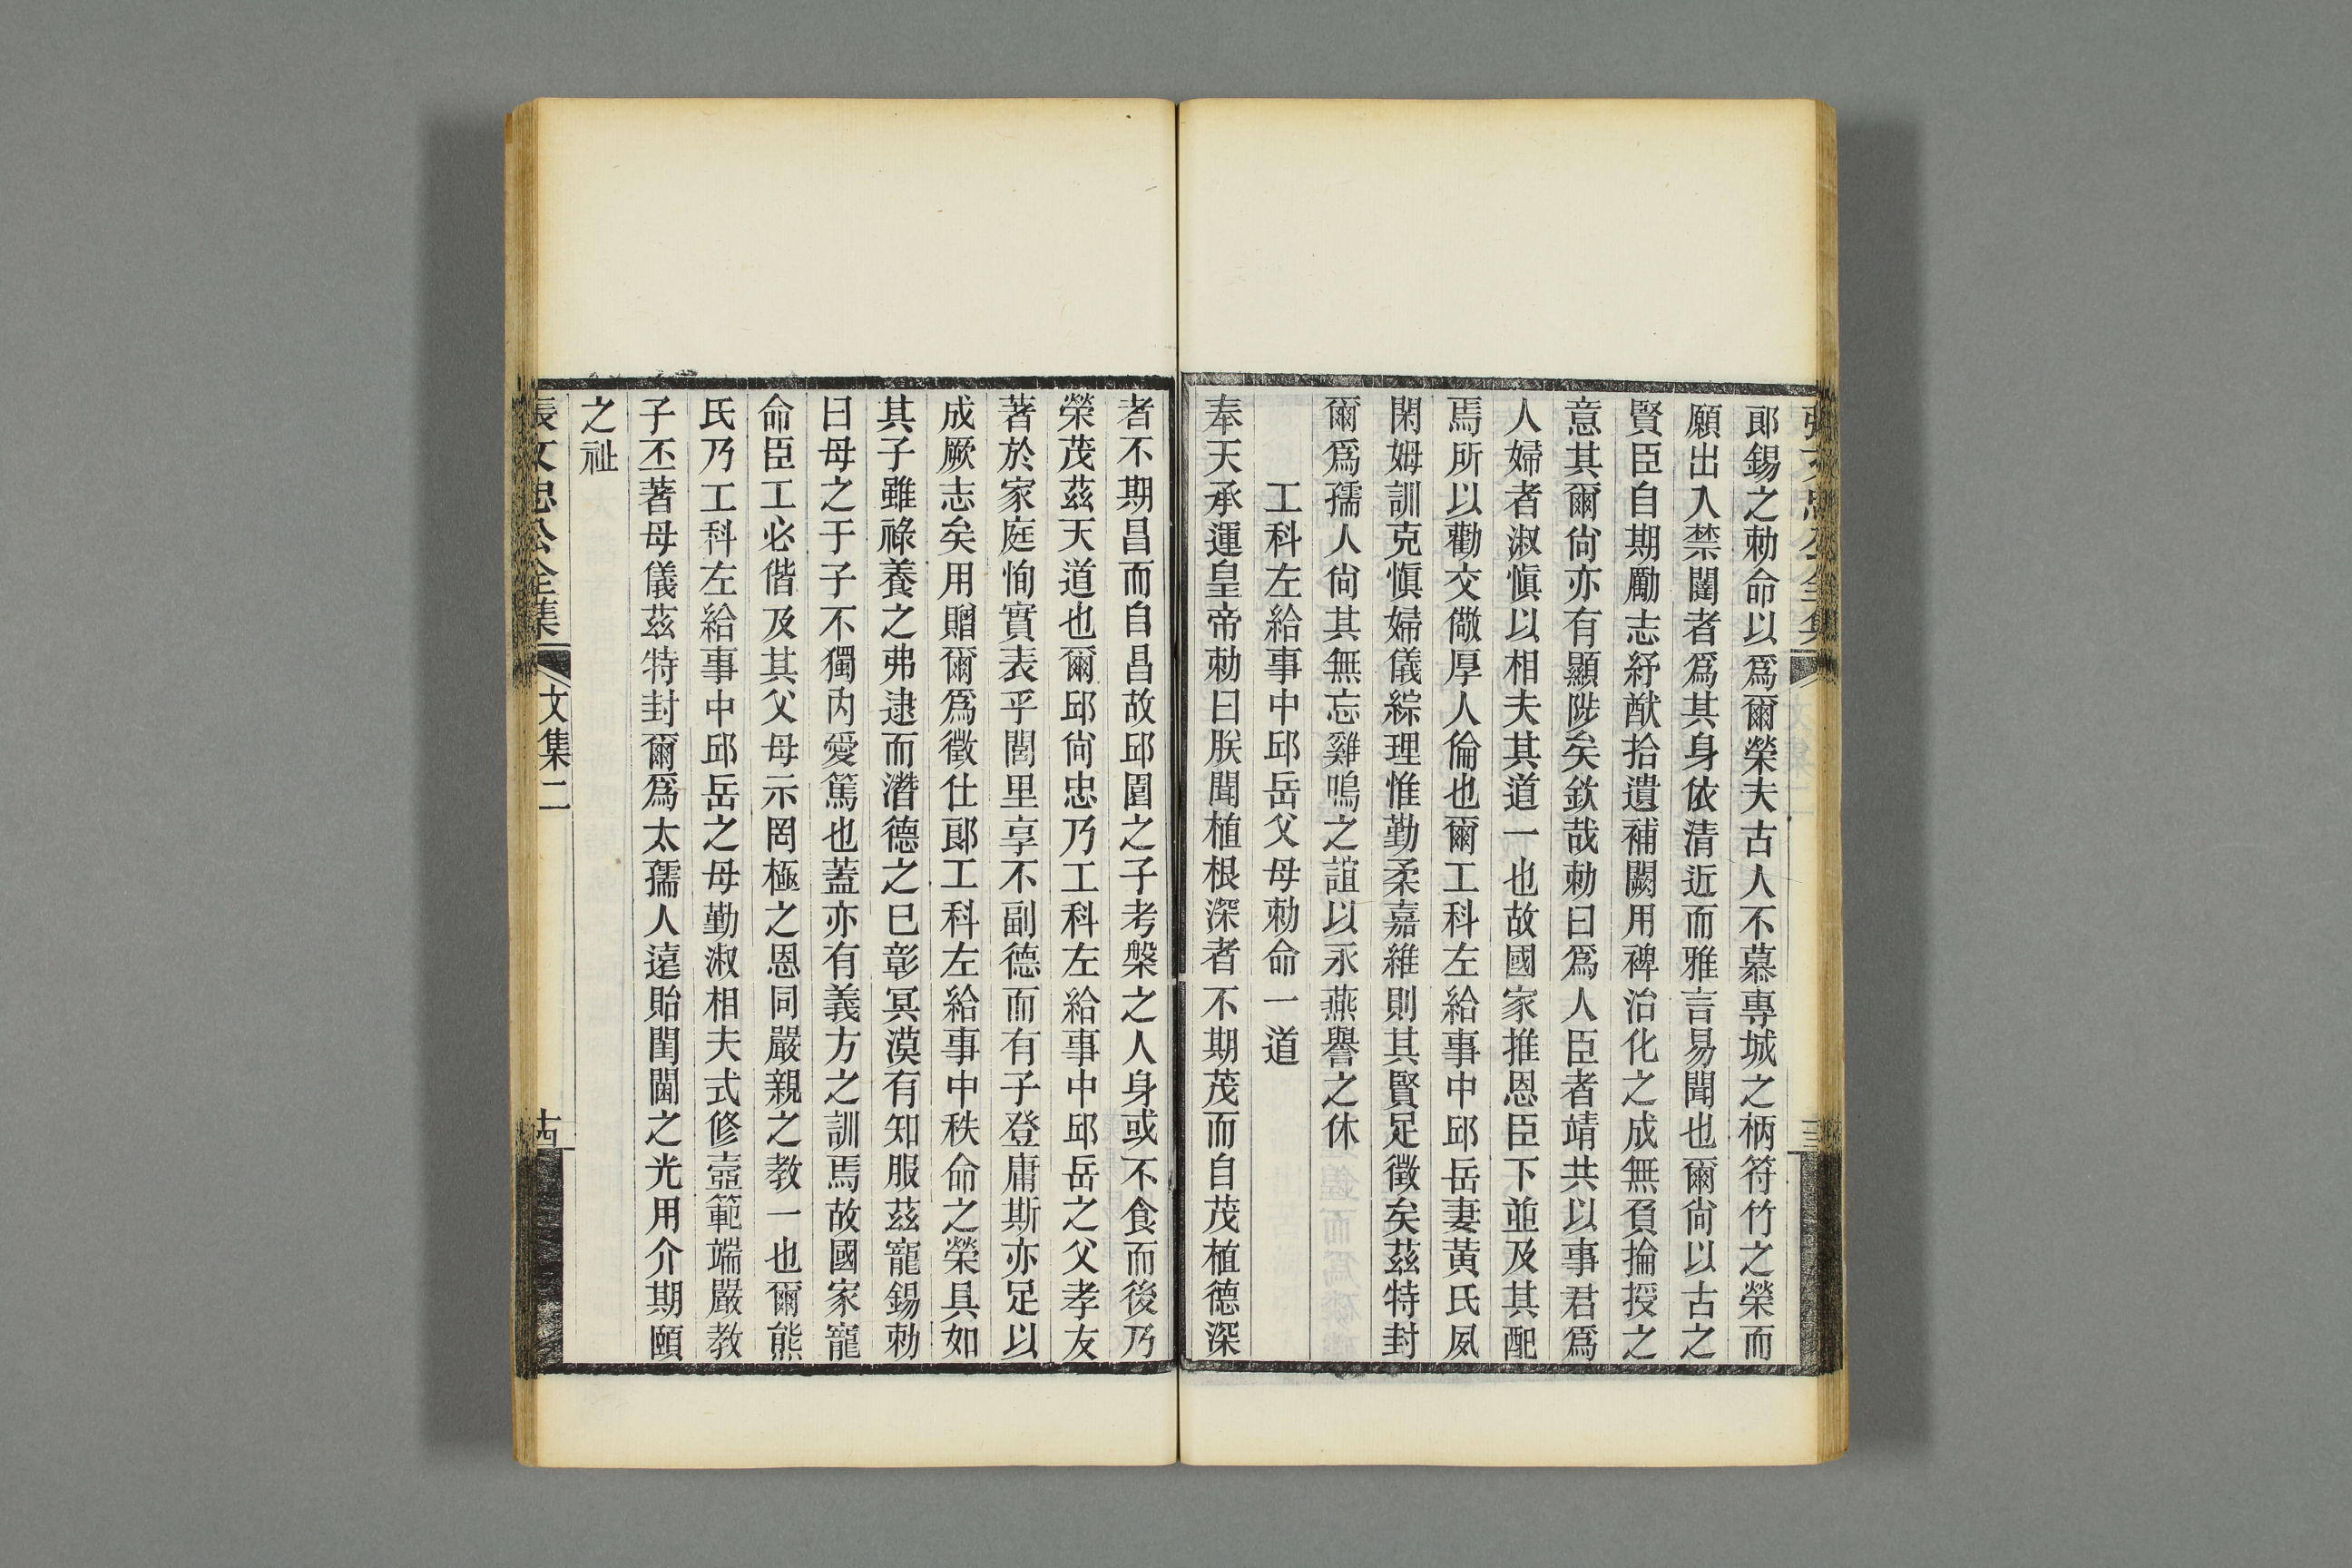 郎錫之勅命以爲爾榮夫古人不慕專城之柄符竹之榮而
願出入禁闥者爲其身依清近而雅言易聞也爾尙以古之
賢臣自期勵志紓猷拾遺補闕用裨治化之成無負掄授之
意其爾尙亦有顯陟矣欽哉勅曰爲人臣者靖共以事君爲
人婦者淑愼以相夫其道一也故國家推恩臣下並及其配
焉所以勸交儆厚人倫也爾工科左給事中邱岳妻黃氏夙
閑姆訓克愼婦儀綜理惟勤柔嘉維則其賢足徵矣茲特封
爾爲孺人尙其無忘雞鳴之誼以永燕譽之休
工科左給事中邱岳父母勅命一道
奉天承運皇帝勅曰朕聞植根深者不期茂而自茂植德深
者不期昌而自昌故邱園之子考槃之人身或不食而後乃
榮茂茲天道也爾邱尙忠乃工科左給事中邱岳之父孝友
著於家庭恂實表乎閭里享不副德而有子登庸斯亦足以
成厥志矣用贈爾爲徵仕郎工科左給事中秩命之榮具如
其子雖祿養之弗逮而潛德之已彰冥漠有知服茲寵錫勅
曰母之于子不獨內愛篤也蓋亦有義方之訓焉故國家寵
命臣工必偕及其父母示罔極之恩同嚴親之教一也爾熊
氏乃工科左給事中邱岳之母勤淑相夫式修壼範端嚴教
子丕著母儀茲特封爾爲太孺人遠貽閨闈之光用介期頤
之祉
張文忠公全集
文集二
十四